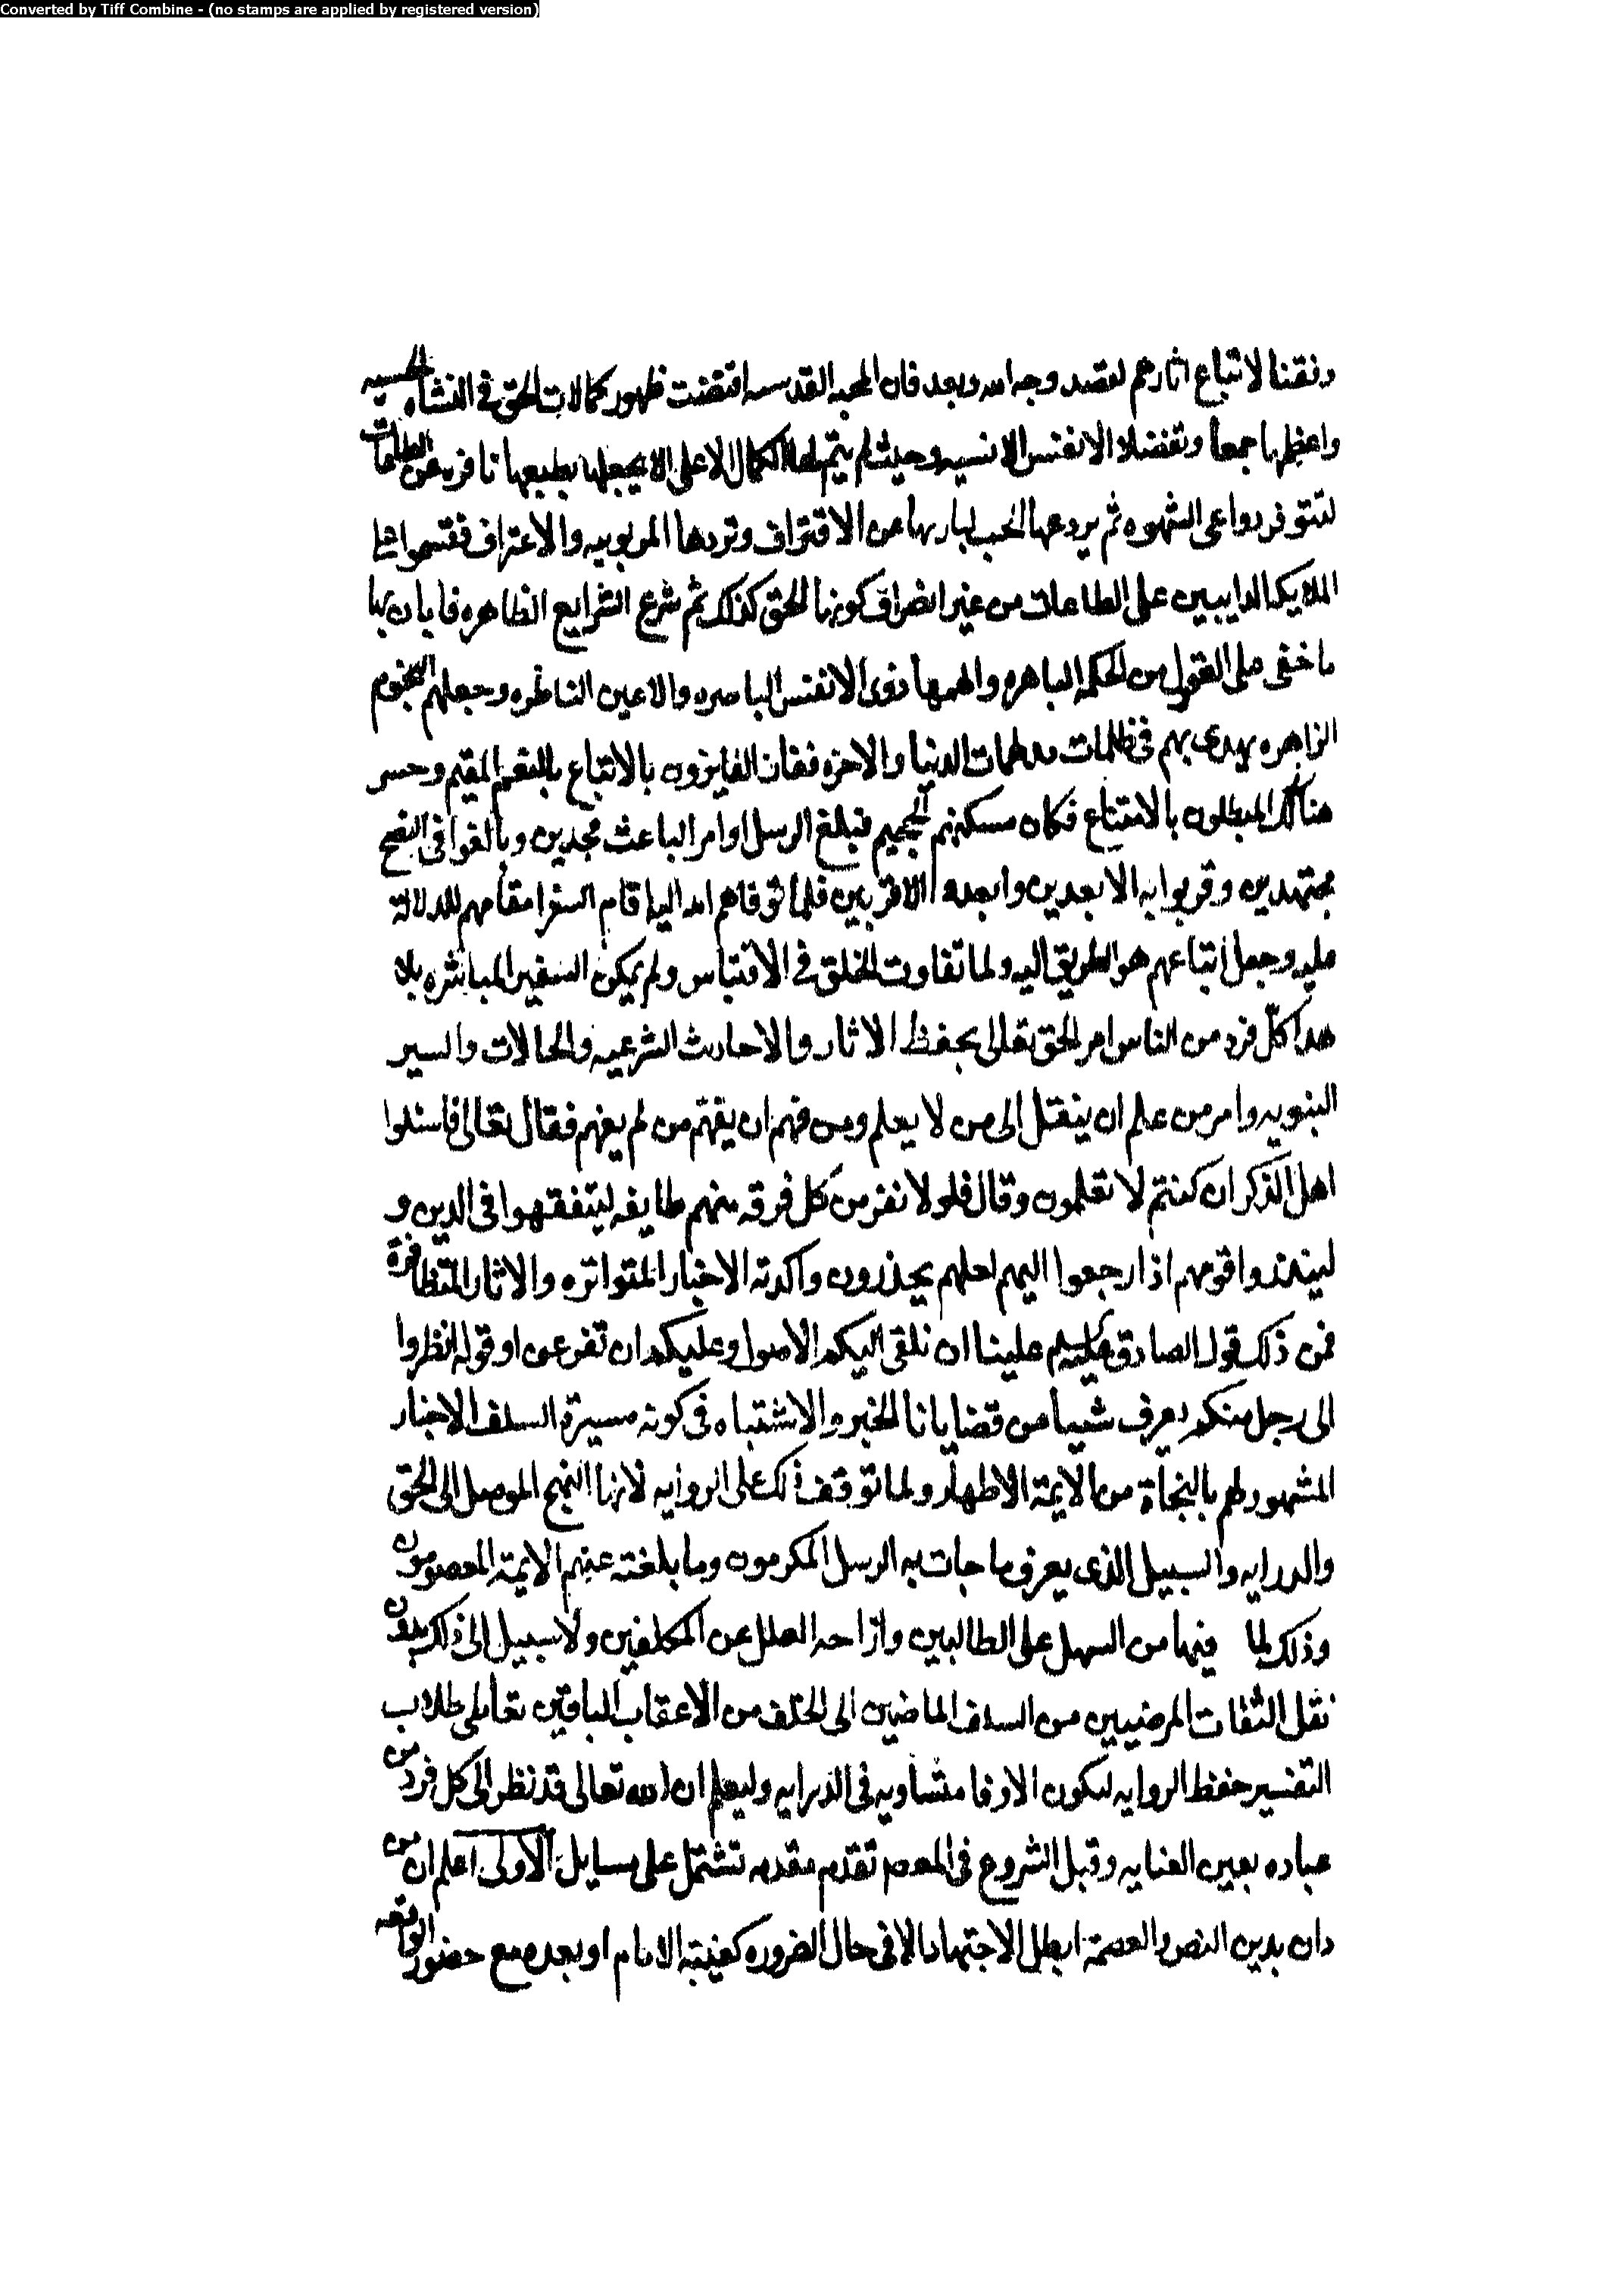 Converted by Tiff Combine - (no stamps are applied by registered version)
وفقنا لاتباع اثارهم لقصد وجه الله وبعد فان المحبه القدسيه اقتضت ظهور كمالات الحق في النشاه الحسيه
واعظمها جمعا وتفضلا الانفس الانسيه وحيث لم يتم لها الكمال الاعلى الا بجعلها بطبعها نافره عن الطاعات
لتتوفر دواعى الشهوه ثم يردعها الحب لبارئها من الاقتراف وتردها المربوبيه والاعتراف
الملايكه الدايبين على الطاعات من غير انصراف كونها للحق كذلك ثم شرع الشرايع الظاهره فابان بها
ما خفى على العقول من الحكمه الباهره والهمها ذوى الانفس الباصره والاعين الناظره وجعلهم النجوم
الزاهره يهدى بهم فى ظلمات الدنيا والاخره ففاز الفايزون بالاتباع بالنعيم المقيم وخسر
هنالك المبطلون بالامتناع فكان مسكنهم الجحيم فبلغ الرسل اوامر الباعث مجدين وبالغوا فى النصح
مجتهدين وقربوا به الابعدين وابعدوا الاقربين فلما توفاهم الله اليه اقام السفرا مقامهم للدلالة
عليه وجعل اتباعهم هو الطريق اليه ولما تفاوت الخلق فى الاقتباس ولم يمكن السفير المباشره
هدا كل فرد من الناس امر الحق تعالى بحفظ الاثار والاحاديث الشرعيه والحالات والسير
النبويه وامر من علم ان ينقل الى من لا يعلم ومن فهم ان يفهم من لم يفهم فقال تعالى فاسئلوا
اهل الذكر ان كنتم لا تعلمون وقال فلولا نفر من كل فرقه منهم طايفه ليتفقهوا فى الدين و
لينذروا قومهم اذا رجعوا اليهم لعلهم يحذرون واكدته الاخبار المتواتره والاثار المتظافرة
فمن ذلك قول الصادق عليه السلم علينا ان نلقى اليكم الاصول وعليكم ان تفرعوا وقوله انظروا
الى رجل منكم يعرف شييا من قضايانا الخبر والاشتباه فى كونه مسيرة السلف الاخيار
المشهود لهم بالنجاة من الايمة الاطهار ولما توقف ذلك على الروايه لانها النهج الموصل الى الحق
والدرايه والسبيل الذى يعرف ما جات به الرسل المكرمون وما بلغته عنهم الايمة المعصومون
وذلك لما فيها من السهل على الطالبين وازاحه العلل عن المكلفين ولا سبيل الى ذلك بدون
نقل الثقات المرضيين من السلف الماضين الى الخلف من الاعقاب الباقين
التفسير حفظ الروايه ليكون متساويه فى الدرايه وليعلم ان الله تعالى قد نظر الى كل فرد من
عباده بعين العنايه وقبل الشروع فى المقصد تقدم مقدمه تشتمل على مسايل الاولى اعلم ان من
دان بدين النص والعصمة ابطل الاجتهاد الا فى حال الضروره كغيبة الامام او بعده مع حضور الواقعه